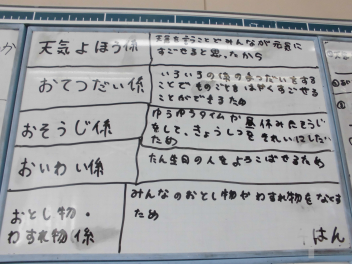 天気よほう係
天気を言うことでみんなが元気に
すごせると思ったから
おてつだい係
いろいろの係のてつだいをする
ことでものごとをはやくすごせる
ことができるため
おそうじ係
ゆうゆうタイムが昼休みにそうじ
をして、きょうしつをきれいにしたい
ため
おいわい係
たん生日の人をよろこばせるため
おとし物・
わすれ物係
みんなのおとし物やわすれ物をなくす
ため
はん
か